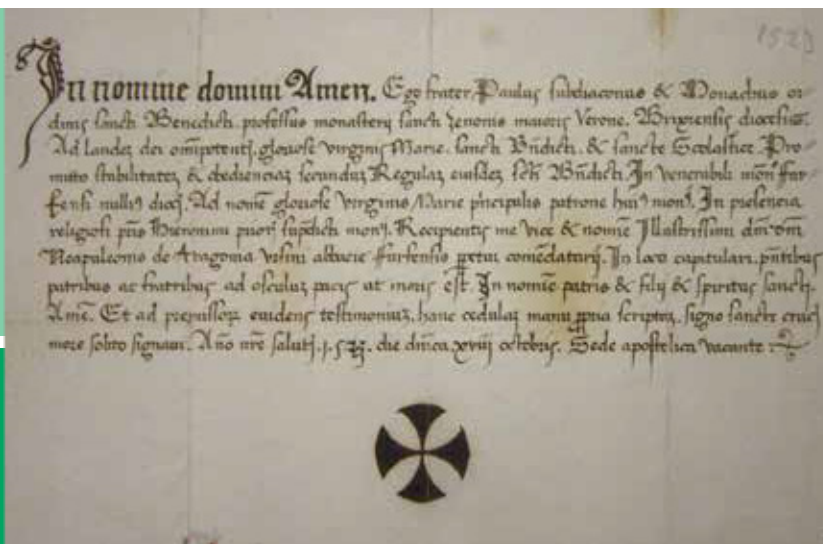 1523
In nomine domini Amen. Ego frater Paulus subdiaconus & Monachus or-
dinis sancti Benedicti professus monasterij sancti zenonis maioris Verone. Brixiensis diocesis.
Ad laudez dei omipotentj, gloriose virginis Marie, sancti Bñdicti, & sancte Scolastice. Pro-
mitto stabilitatez & obedienciaz secunduz Regulaz eiusdez sctĩ Bñdicti. In venerabili mon. Far-
fensi nulliꝯ dioc. Ad nomẽ gloriose virginis Marie principalis patrone huiꝯ mon. In presencia
religiosi pris Hieronimi prioris supdicti mon. Recipientis me vice & nomine Illustrissimi dm̃ om
Neapuleonis de Aragonia Vrsini abbacie Farfensis ppetui comẽdatarij. In loco capitulari, pñtibus
patribus ac fratribus ad osculuz pacis ut moris est. In nomie patris & filij & spiritus sancti.
Amẽ. Et ad premissorz euidens testimoniuz, hanc cedulaz manu ppria scriptaz, signo sancte crucis
more solito signaui. Año nre salutj. 1.523. die dñica xviij octobris. Sede apostolica vacante